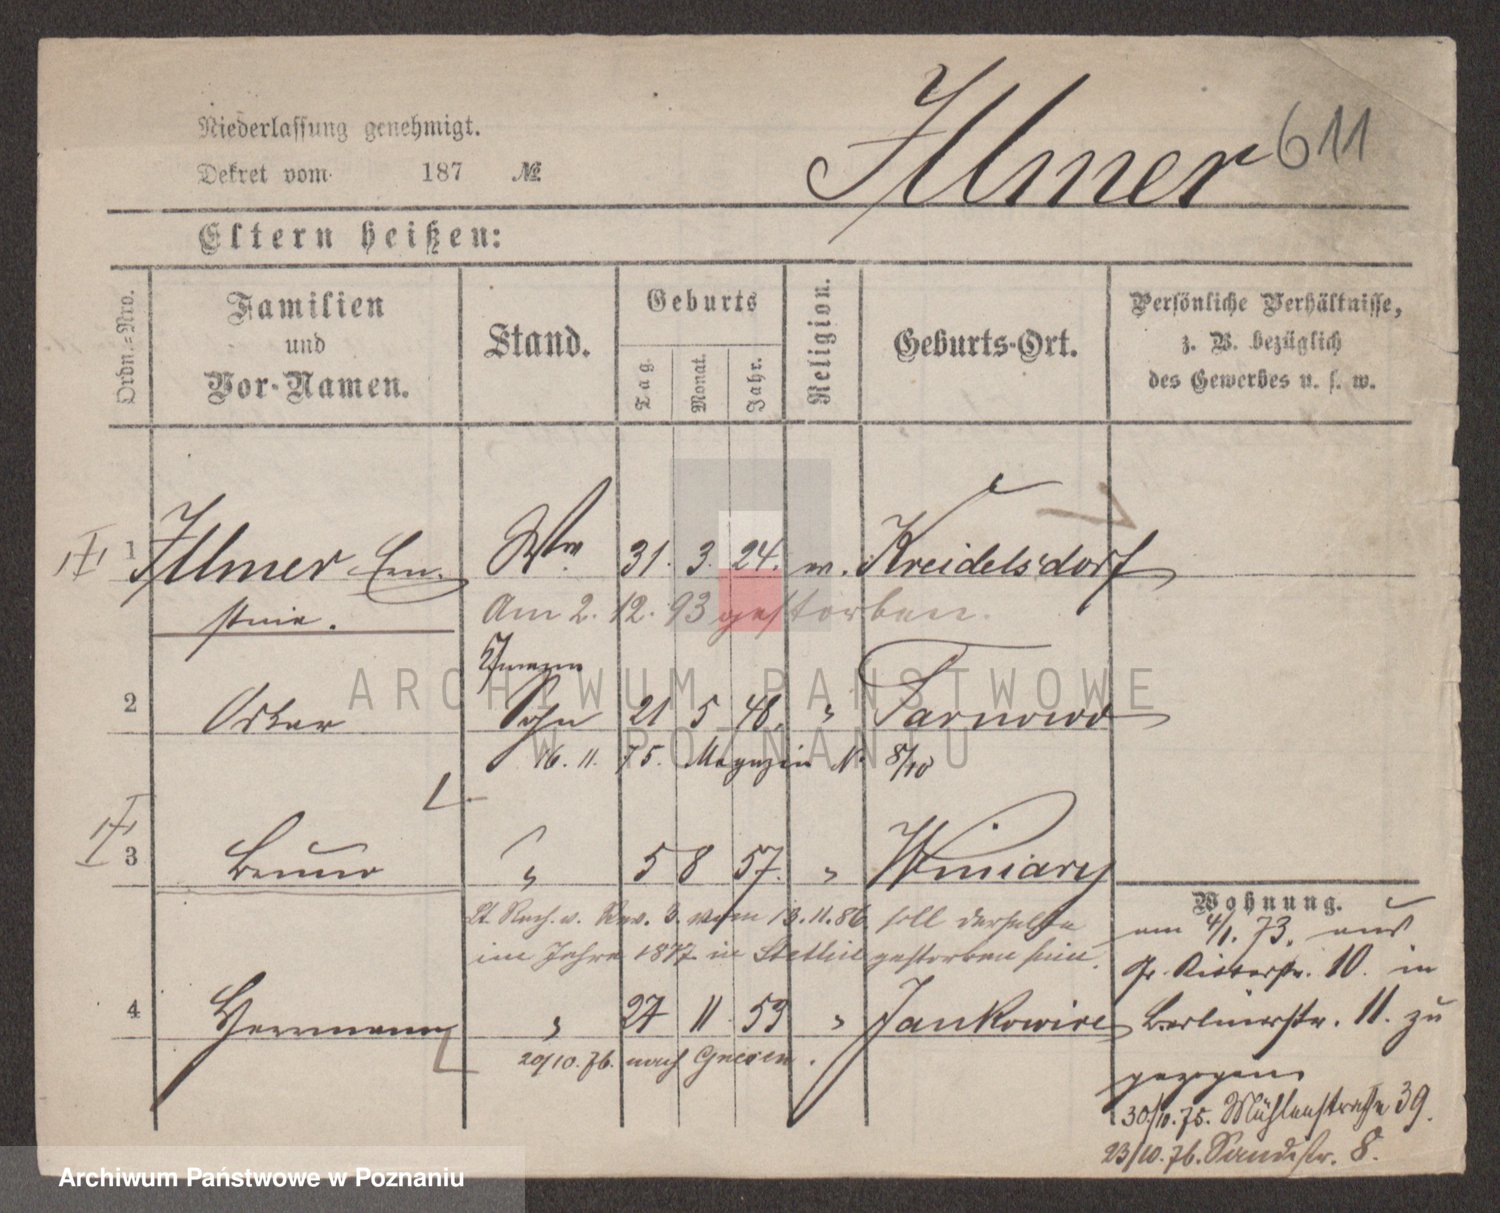 Niederlassung genehmigt.
Dekret vom 187 №
Illmer 611
Eltern heißen:
Ordn.=Nro.
Familien
und
Vor-Namen.
Stand.
Geburts
Tag.
Monat.
Jahr.
Religion.
Geburts-Ort.
Persönliche Verhältnisse,
z. B. bezüglich
des Gewerbes u. s. w.
1 Illmer Ern- Wwe 31. 3. 24. ev. Kreidelsdorf
stine.
Am 2. 12. 93 gestorben.
2 Oskar Sohn 21 5 48. " Tarnowo
16. 11. 75. Magazin N. 8/10
3 Bruno " 5 8 57. " Winiary
Lt. Rech. v. Rev. 3. vom 13.11.86 soll derselbe
im Jahre 1877 in Stettin gestorben sein.
4 Herrmann " 27 11 59 " Jankowice
20/10.76. nach Gnesen.
Wohnung.
am 4/1. 73. aus
Gr. Ritterstr. 10. in
Berlinerstr. 11. zu
gezogen
30/10.75. Mühlenstraße 39.
23/10.76. Sandstr. 8.
ARCHIWUM PAŃSTWOWE
W POZNANIU
Archiwum Państwowe w Poznaniu